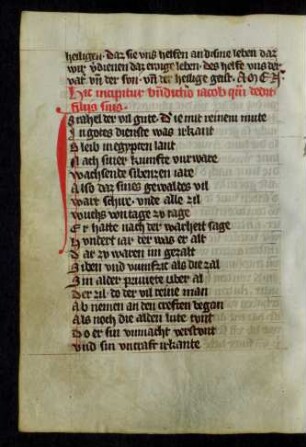 heiligen. daz sie vns helfen an disme leben daz
wir vͦdienen daz ewige leben. des helfe vns der
vat' vn̄ der son. vn̄ der heilige geist. AMEN
Hic incipitur bn̄dictio iacob qm̄ dedit
filiis suis.
Israhel der vil gute. Die mit reinem mute
In gotes dienste was irkant
Bleib in egypten lant
Nach siner kumfte vurware
Wachsende sibenzen iare
Also daz sines gewaldes vil
Wart schire. vnde alle zil
Wuchs von tage zv tage
Er hatte nach der warheit sage
Hvndert iar der was er alt
Dar zv waren im gezalt
Siben vnd vumfzic als die zal
Im alder prüuete uber al
Der zil. do der vil reine man
Ab nemen an den creften began
Als noch die alden lute tvnt
Do er sin vnmacht verstvnt
Vnd sin vncraft irkante